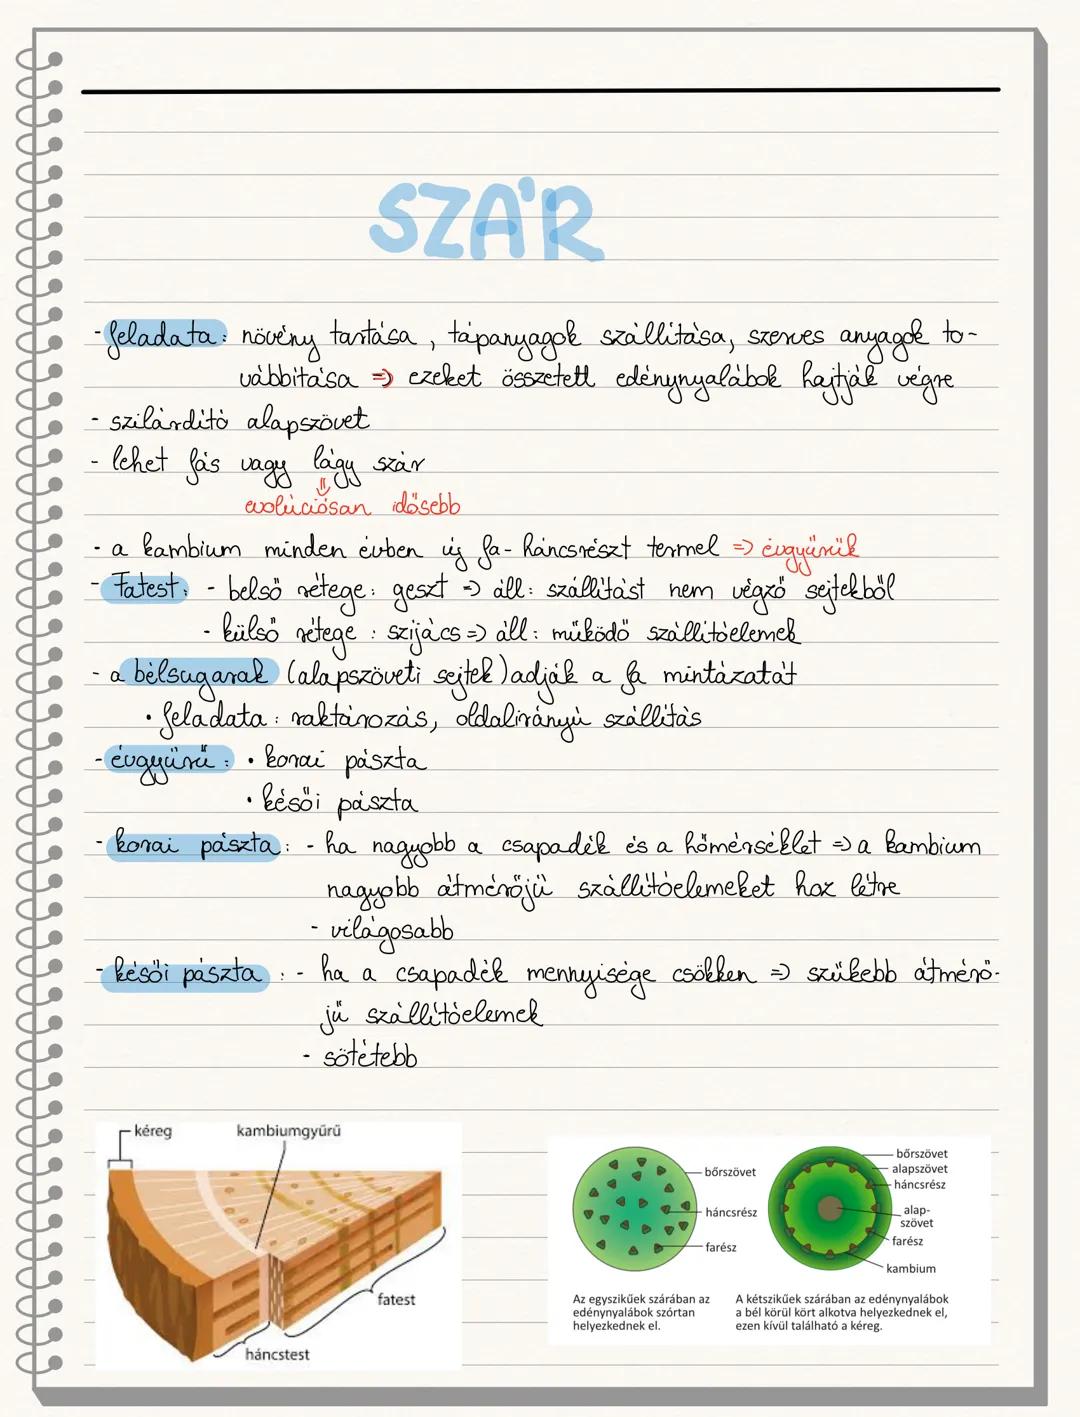 SZÁR
- feladata: növény tartása, tápanyagok szállítása, szerves anyagok to-
vábbítása => ezeket összetett edénynyalábok hajtják végre
- szilárdító alapszövet
- lehet fás vagy lágy szár
⇓
evolúciósan idősebb
- a kambium minden évben új fa- háncsrészt termel => évgyűrűk
- Fatest: - belső rétege: geszt => áll: szállítást nem végző sejtekből
- külső rétege: szijács => áll: működő szállítóelemek
- a bélsugarak (alapszöveti sejtek) adják a fa mintázatát
• feladata: raktározás, oldalirányú szállítás
- évgyűrű: • korai pászta
• késői pászta
- korai pászta: - ha nagyobb a csapadék és a hőmérséklet => a kambium
nagyobb átmérőjű szállítóelemeket hoz létre
- világosabb
- késői pászta: - ha a csapadék mennyisége csökken => szűkebb átmérő-
jű szállítóelemek
- sötétebb
kéreg
kambiumgyűrű
fatest
háncstest
bőrszövet
háncsrész
farész
Az egyszikűek szárában az
edénynyalábok szórtan
helyezkednek el.
bőrszövet
alapszövet
háncsrész
alap-
szövet
farész
kambium
A kétszikűek szárában az edénynyalábok
a bél körül kört alkotva helyezkednek el,
ezen kívül található a kéreg.